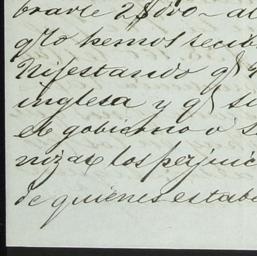 brarle 2$000 - al
qᵉ lo hemos recib
nifestando qᵉ
inglesa y qᵉ si
el gobierno ó
nizar los perjuic
de quienes estaba